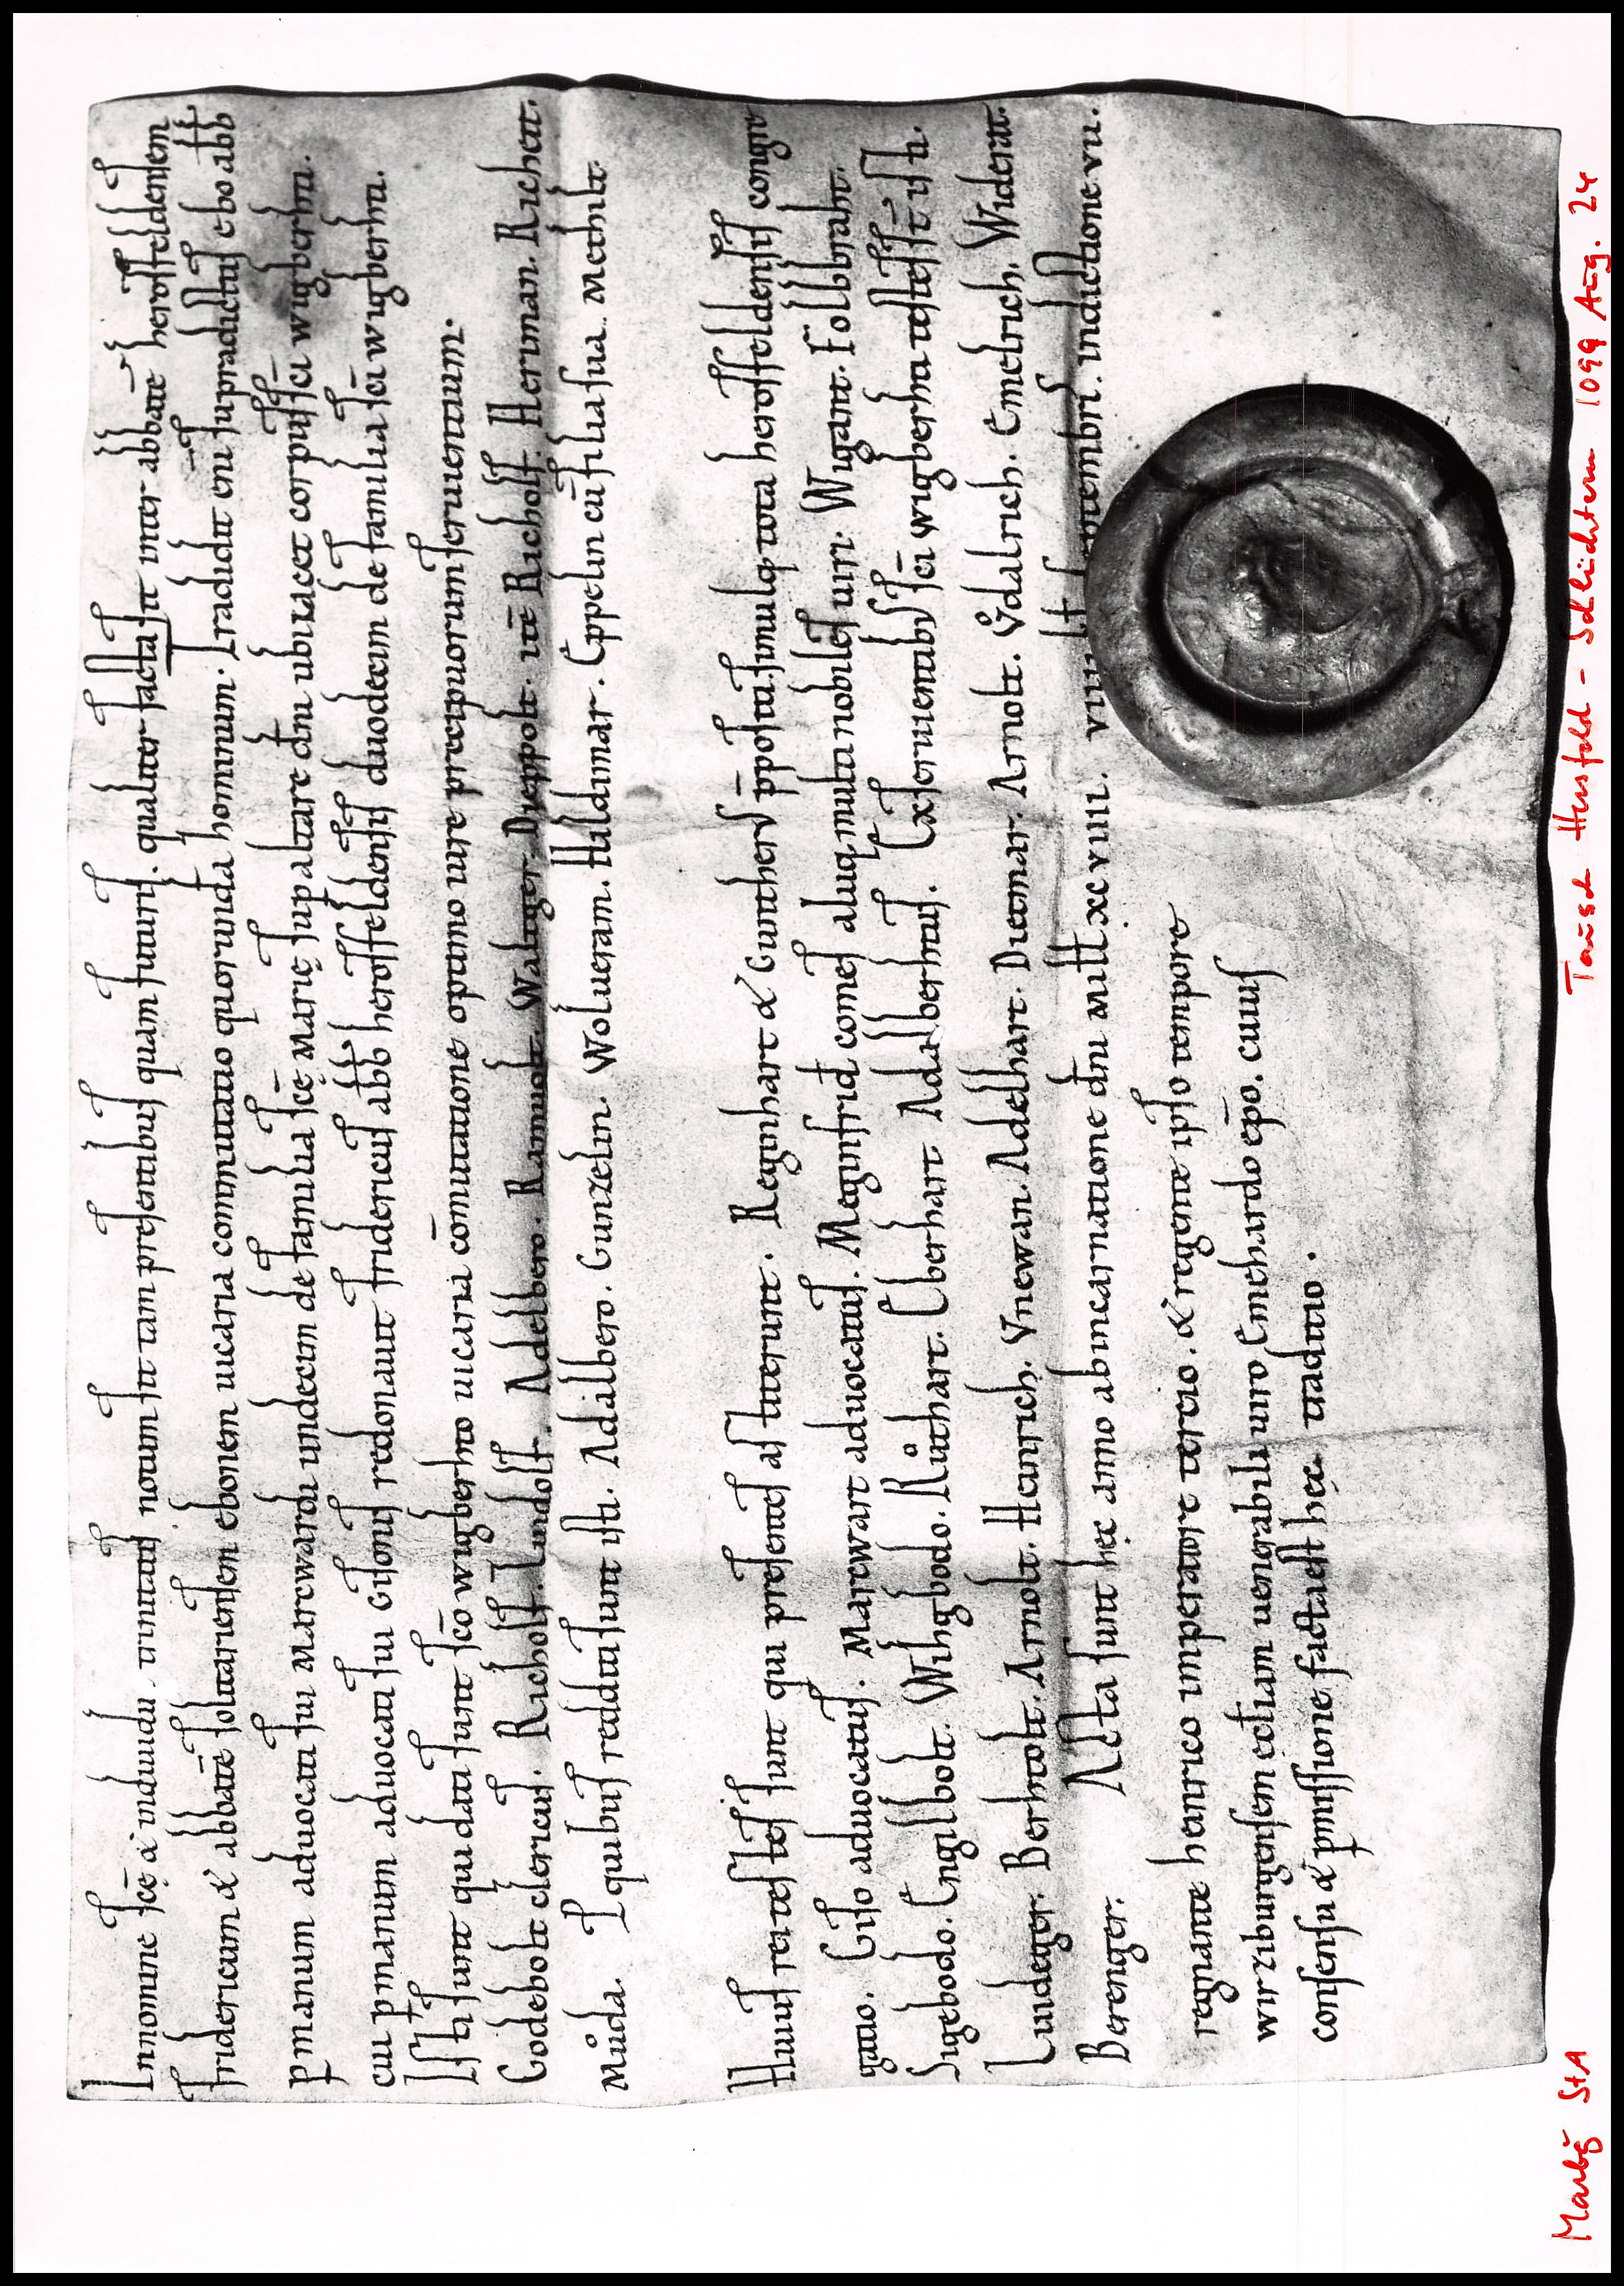 Innomine sce & indiuidue trinitatis notum sit tam presentibus quam futuris. qualiter facta sit inter abbate herosfeldensem
fridericum & abbate solitariensem ebonem uicaria commutatio quorunda hominum. Tradidit eni supradictus ebo abb
p manum aduocati sui Marcwardi undecim de familia sce Marie sup altare dni ubi iacet corpus sci wigberhti.
cui p manum aduocati sui Gisonis redonauit fridericus abb herosfeldensis duodecim de familia sci wigberhti.
Isti sunt qui dati sunt sco wigberhto uicaria comutatione optimo iure precipuorum seruientium.
Godebolt clericus. Richolf. Liudolf. Adelbero. Ramuolt. Waltger. Dieppolt. ite Richolf. Heriman. Richett.
Muda. Pquibus redditi sunt isti. Adalbero. Gunzelin. Wolueram. Hildimar. Eppelin cu filia sua. Methilt.
Huius rei testes sunt qui presentes astiterunt. Reginhart & Guntherus ppositus simulq tota herosfeldensis congre
gatio. Giso aduocatus. Marcwart aduocatus. Meginfrid comes aliiq multi nobiles uiri. Wigant. Folbraht.
Sigebodo. Engilbolt. Wihgbodo. Ruthart. Eberhart. Adalberhtus. Ex seruientibus sci wigberhti testes st isti.
Liudeger. Berhtolt. Arnolt. Heinrich. Vnewan. Adelhart. Dietmar. Arnolt. Vdalrich. Emelrich. Widerat.
Berenger. Acta sunt hec anno ab incarnatione dni mill xcviiii. viiii kl septembri. indictione vii.
regnante heinrico imperatore tercio. & regente ipso tempore
wirziburgensem eccliam uenerabili uiro Emehardo epo. cuius
consensu & pmissione facta est hec traditio.
Tausch Hersfeld - Schlüchtern 1099 Aug. 24
Marbg StA